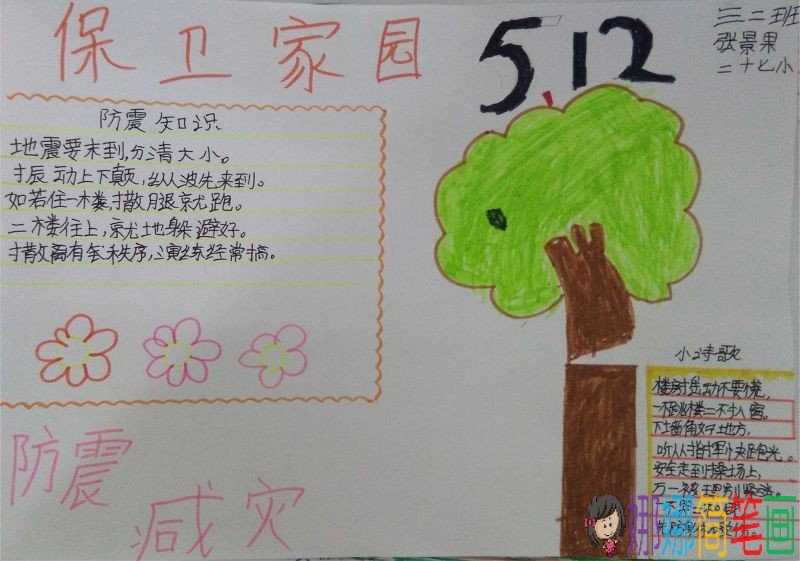 保卫家园
5.12
三二班
张景果
二十七小
防震知识
地震要来到,分清大小。
振动上下颠,纵波先来到。
如若住一楼,撒腿就跑。
二楼往上,就地躲避好。
撤离有秩序,演练经常搞。
防震
减灾
小诗歌
楼房摇动不要慌,
一不跳楼二不扒窗。
下墙角好地方,
听从指挥快跑光。
安全走到操场上,
万一被埋别紧张。
娜娜简笔画